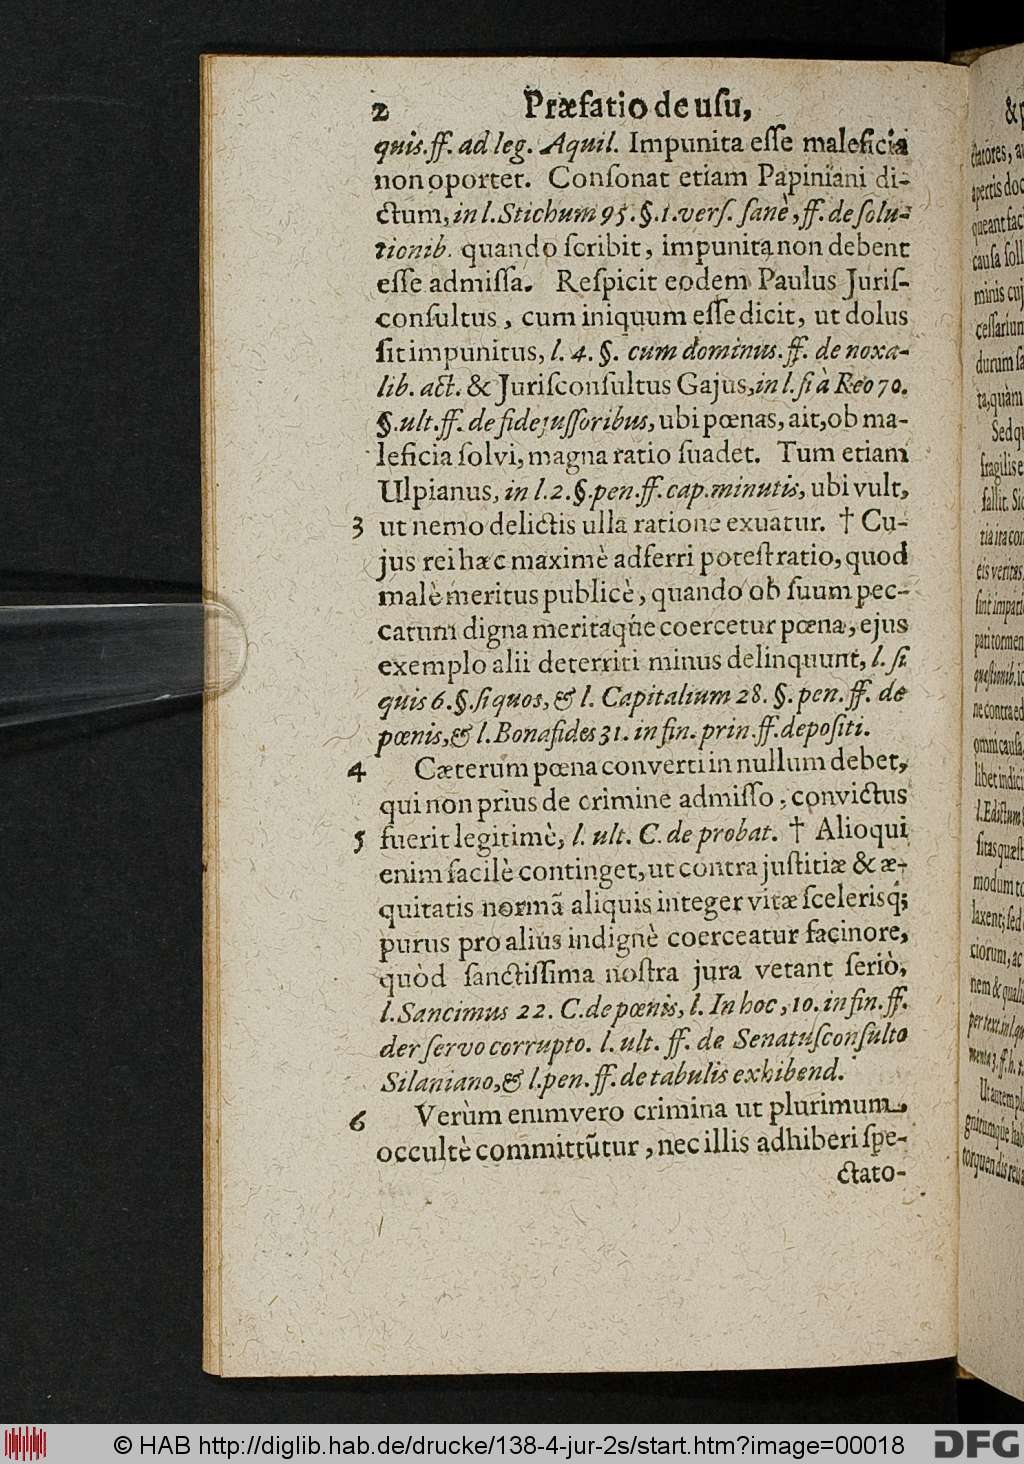 2 Præfatio de uſu,
quis.ff. ad leg. Aquil. Impunita eſſe maleficia
non oportet. Conſonat etiam Papiniani di-
ctum, in l. Stichum 95. §. 1. verſ. ſanè, ff. de ſolu-
tionib. quando ſcribit, impunita non debent
eſſe admiſſa. Reſpicit eodem Paulus Juriſ-
conſultus, cum iniquum eſſe dicit, ut dolus
ſit impunitus, l. 4. §. cum dominus. ff. de noxa-
lib. act. & Juriſconſultus Gajus, in l. ſi à Reo 70.
§. ult. ff. de fidejuſſoribus, ubi pœnas, ait, ob ma-
leficia ſolvi, magna ratio ſuadet. Tum etiam
Ulpianus, in l. 2. §. pen. ff. cap. minutis, ubi vult,
3 ut nemo delictis ulla ratione exuatur. † Cu-
jus rei hæc maximè adferri poteſt ratio, quod
malè meritus publicè, quando ob ſuum pec-
catum digna meritaqúe coercetur pœna, ejus
exemplo alii deterriti minus delinquunt, l. ſi
quis 6. §. ſi quos, & l. Capitalium 28. §. pen. ff. de
pœnis, & l. Bonafides 31. in fin. prin. ff. depoſiti.
4 Cæterum pœna converti in nullum debet,
qui non prius de crimine admiſſo, convictus
5 fuerit legitimè, l. ult. C. de probat. † Alioqui
enim facilè continget, ut contra juſtitiæ & æ-
quitatis normã aliquis integer vitæ ſceleriſq́;
purus pro alius indignè coerceatur facinore,
quòd ſanctiſſima noſtra jura vetant ſeriò,
l. Sancimus 22. C. de pœnis, l. In hoc, 10. in fin. ff.
der ſervo corrupto. l. ult. ff. de Senatuſconſulto
Silaniano, & l. pen. ff. de tabulis exhibend.
6 Verùm enimvero crimina ut plurimum,
occultè committũtur, nec illis adhiberi ſpe-
ctato-
& p
ctatores, a
apertis doc
queant fac
cauſa ſoll
minis cuj
ceſſariun
durum ſa
ta, quàm
Sed qu
fragilis e
fallit. Sic
tia ita con
eis veritas,
ſint impati
pati tormen
quæſtionib. ic
ne contra ed
omni cauſa
libet indici
l. Edictum
ſitas quæſt
modum to
laxent; ſed
ciorum, ac
nem & quali
per text. in l. qu
menta 3. ff. h. t
Ut autem pl
gnitumqúe hab
torquendis reis
© HAB http://diglib.hab.de/drucke/138-4-jur-2s/start.htm?image=00018 DFG